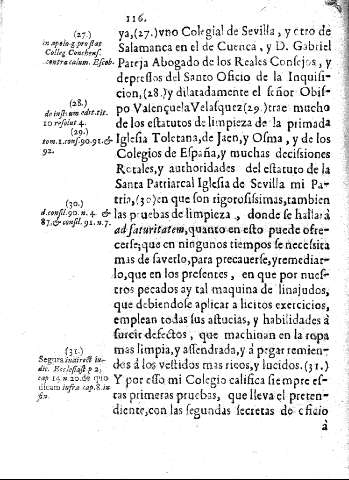 116.
ya,(27.) vno Colegial de Sevilla, y otro de
Salamanca en el de Cuenca, y D. Gabriel
Pareja Abogado de los Reales Consejos, y
depressos del Santo Oficio de la Inquisi-
cion,(28.) y dilatadamente el señor Obis-
po Valençuela Velasquez (29.) trae mucho
de los estatutos de limpieza de la primada
Iglesia Toletana, de Jaen, y Osma, y de los
Colegios de España, y muchas decissiones
Rotales, y authoridades del estatuto de la
Santa Patriarcal Iglesia de Sevilla mi Pa-
tria,(30) en que son rigorosissimas, tambien
las pruebas de limpieza, donde se hallarà
ad saturitatem, quanto en esto puede ofre-
cerse; que en ningunos tiempos se necessita
mas de saverlo, para precauerse, y remediar-
lo, que en los presentes, en que por nues-
tros pecados ay tal maquina de linajudos,
que debiendose aplicar a licitos exercicios,
emplean todas sus astucias, y habilidades à
surcir defectos, que machinan en la ropa
mas limpia, y assendrada, y à pegar remien-
dos à los vestidos mas ricos, y lucidos. (31.)
Y por esso mi Colegio califica siempre es-
tas primeras pruebas, que lleva el preten-
diente, con las segundas secretas de oficio
à
(27.)
in apolog. pro stat.
Colleg. Conchens.
contra calum. Escob.
(28.)
de instrum edit. tit.
10 resolut 4.
(29.)
tom. 1. cons. 90. 91. &
92.
(30.)
d. consil. 90. n. 4 &
87. & consil. 91. n. 7.
(31.)
Segura in direct iu-
dic. Ecclesiast p 2;
cap 14 n 20. de quo
dicam infra cap. 8. in
fin.